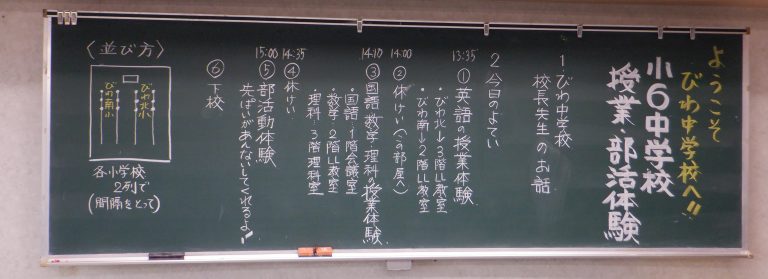 ようこそ
びわ中学校へ!!
小6中学校
授業・部活体験
1 びわ中学校
校長先生のお話
2 今日のよてい
13:35
①英語の授業体験
・びわ北小3階LL教室
・びわ南小2階LL教室
14:00
②休けい(この部屋へ)
14:10
③国語、数学、理科の授業体験
・国語:1階会議室
・数学:2階LL教室
・理科:3階理科室
14:35
④休けい
15:00
⑤部活動体験
先ぱいがあんないしてくれるよ!!
⑥下校
〈並び方〉
びわ北小
びわ南小
各小学校
2列で
(間隔をとって)